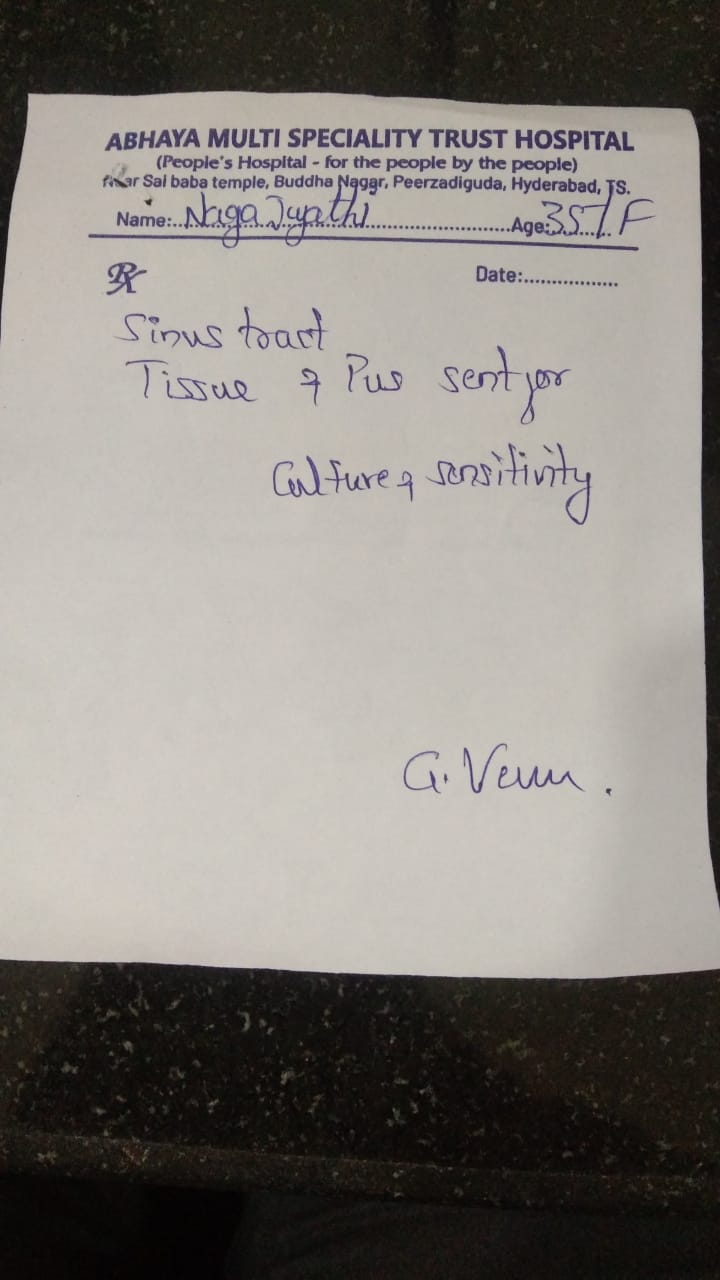 ABHAYA MULTI SPECIALITY TRUST HOSPITAL
(People's Hospital - for the people by the people)
Near Sai baba temple, Buddha Nagar, Peerzadiguda, Hyderabad, TS.
Name:..Naga Jyothi..............................Age:35/F
Rx Date:..................
Sinus tract
Tissue & Pus sent for
Culture & sensitivity
G. Venu.